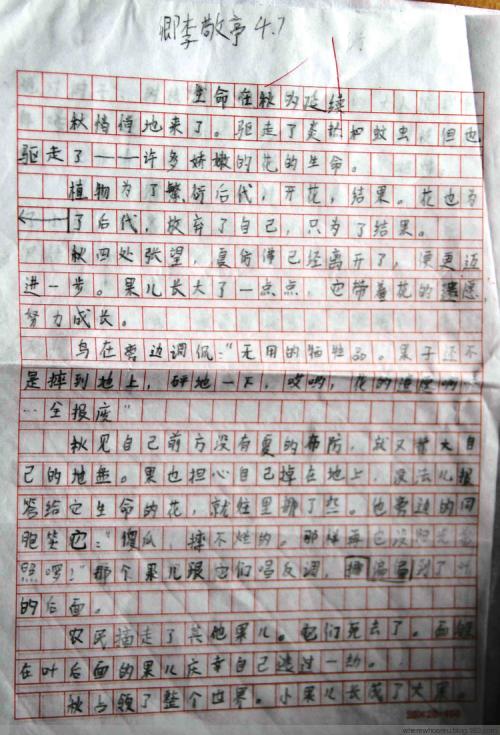 卿李敬亭 4.7
生命在秋为延续
秋悄悄地来了。驱走了炎热和蚊虫，但也
驱走了——许多娇嫩的花的生命。
植物为了繁衍后代，开花，结果。花也为
了后代，放弃了自己，只为了结果。
秋四处张望，夏仿佛已经离开了，便更迈
进一步。果儿长大了一点点，它带着花的遗愿，
努力成长。
鸟在旁边调侃："无用的牺牲品。果子还不
是摔到地上，砰地一下，哎哟，花的遗愿啊…
…全报废"
秋见自己前方没有夏的布防，就又扩大自
己的地盘。果也担心自己掉在地上，没法儿报
答给它生命的花，就往里挪了些。他旁边的同
胞笑它："傻瓜，摔不烂的。那样
照啰！"那个果儿跟它们唱反调，到了叶
的后面。
农民摘走了其他果儿。它们死去了。而躲
在叶后面的果儿庆幸自己逃过一劫。
秋占领了整个世界。小果儿长成了大果。
wherewhoareu.blog.163.com